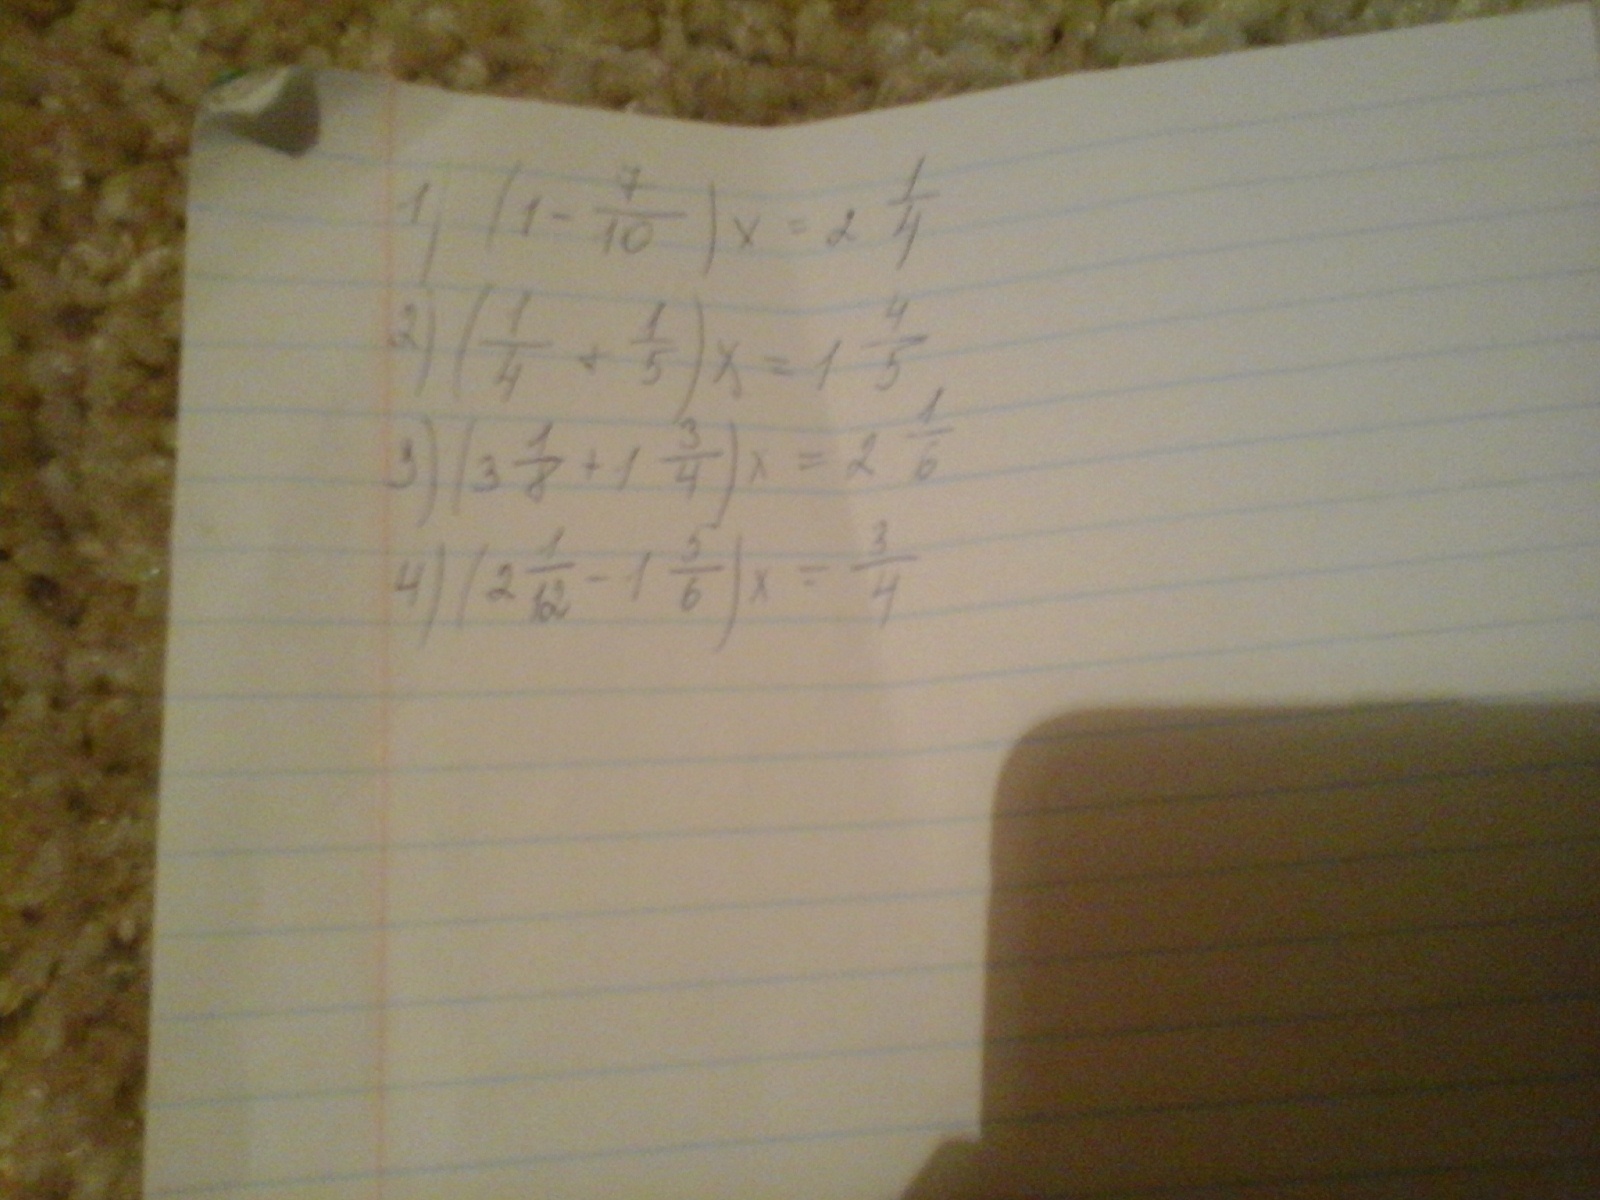 1) (1 - 7/10) x = 2 1/4
2) (1/4 + 1/5) x = 1 4/5
3) (3 1/8 + 1 3/4) x = 2 1/6
4) (2 1/12 - 1 5/6) x = 3/4